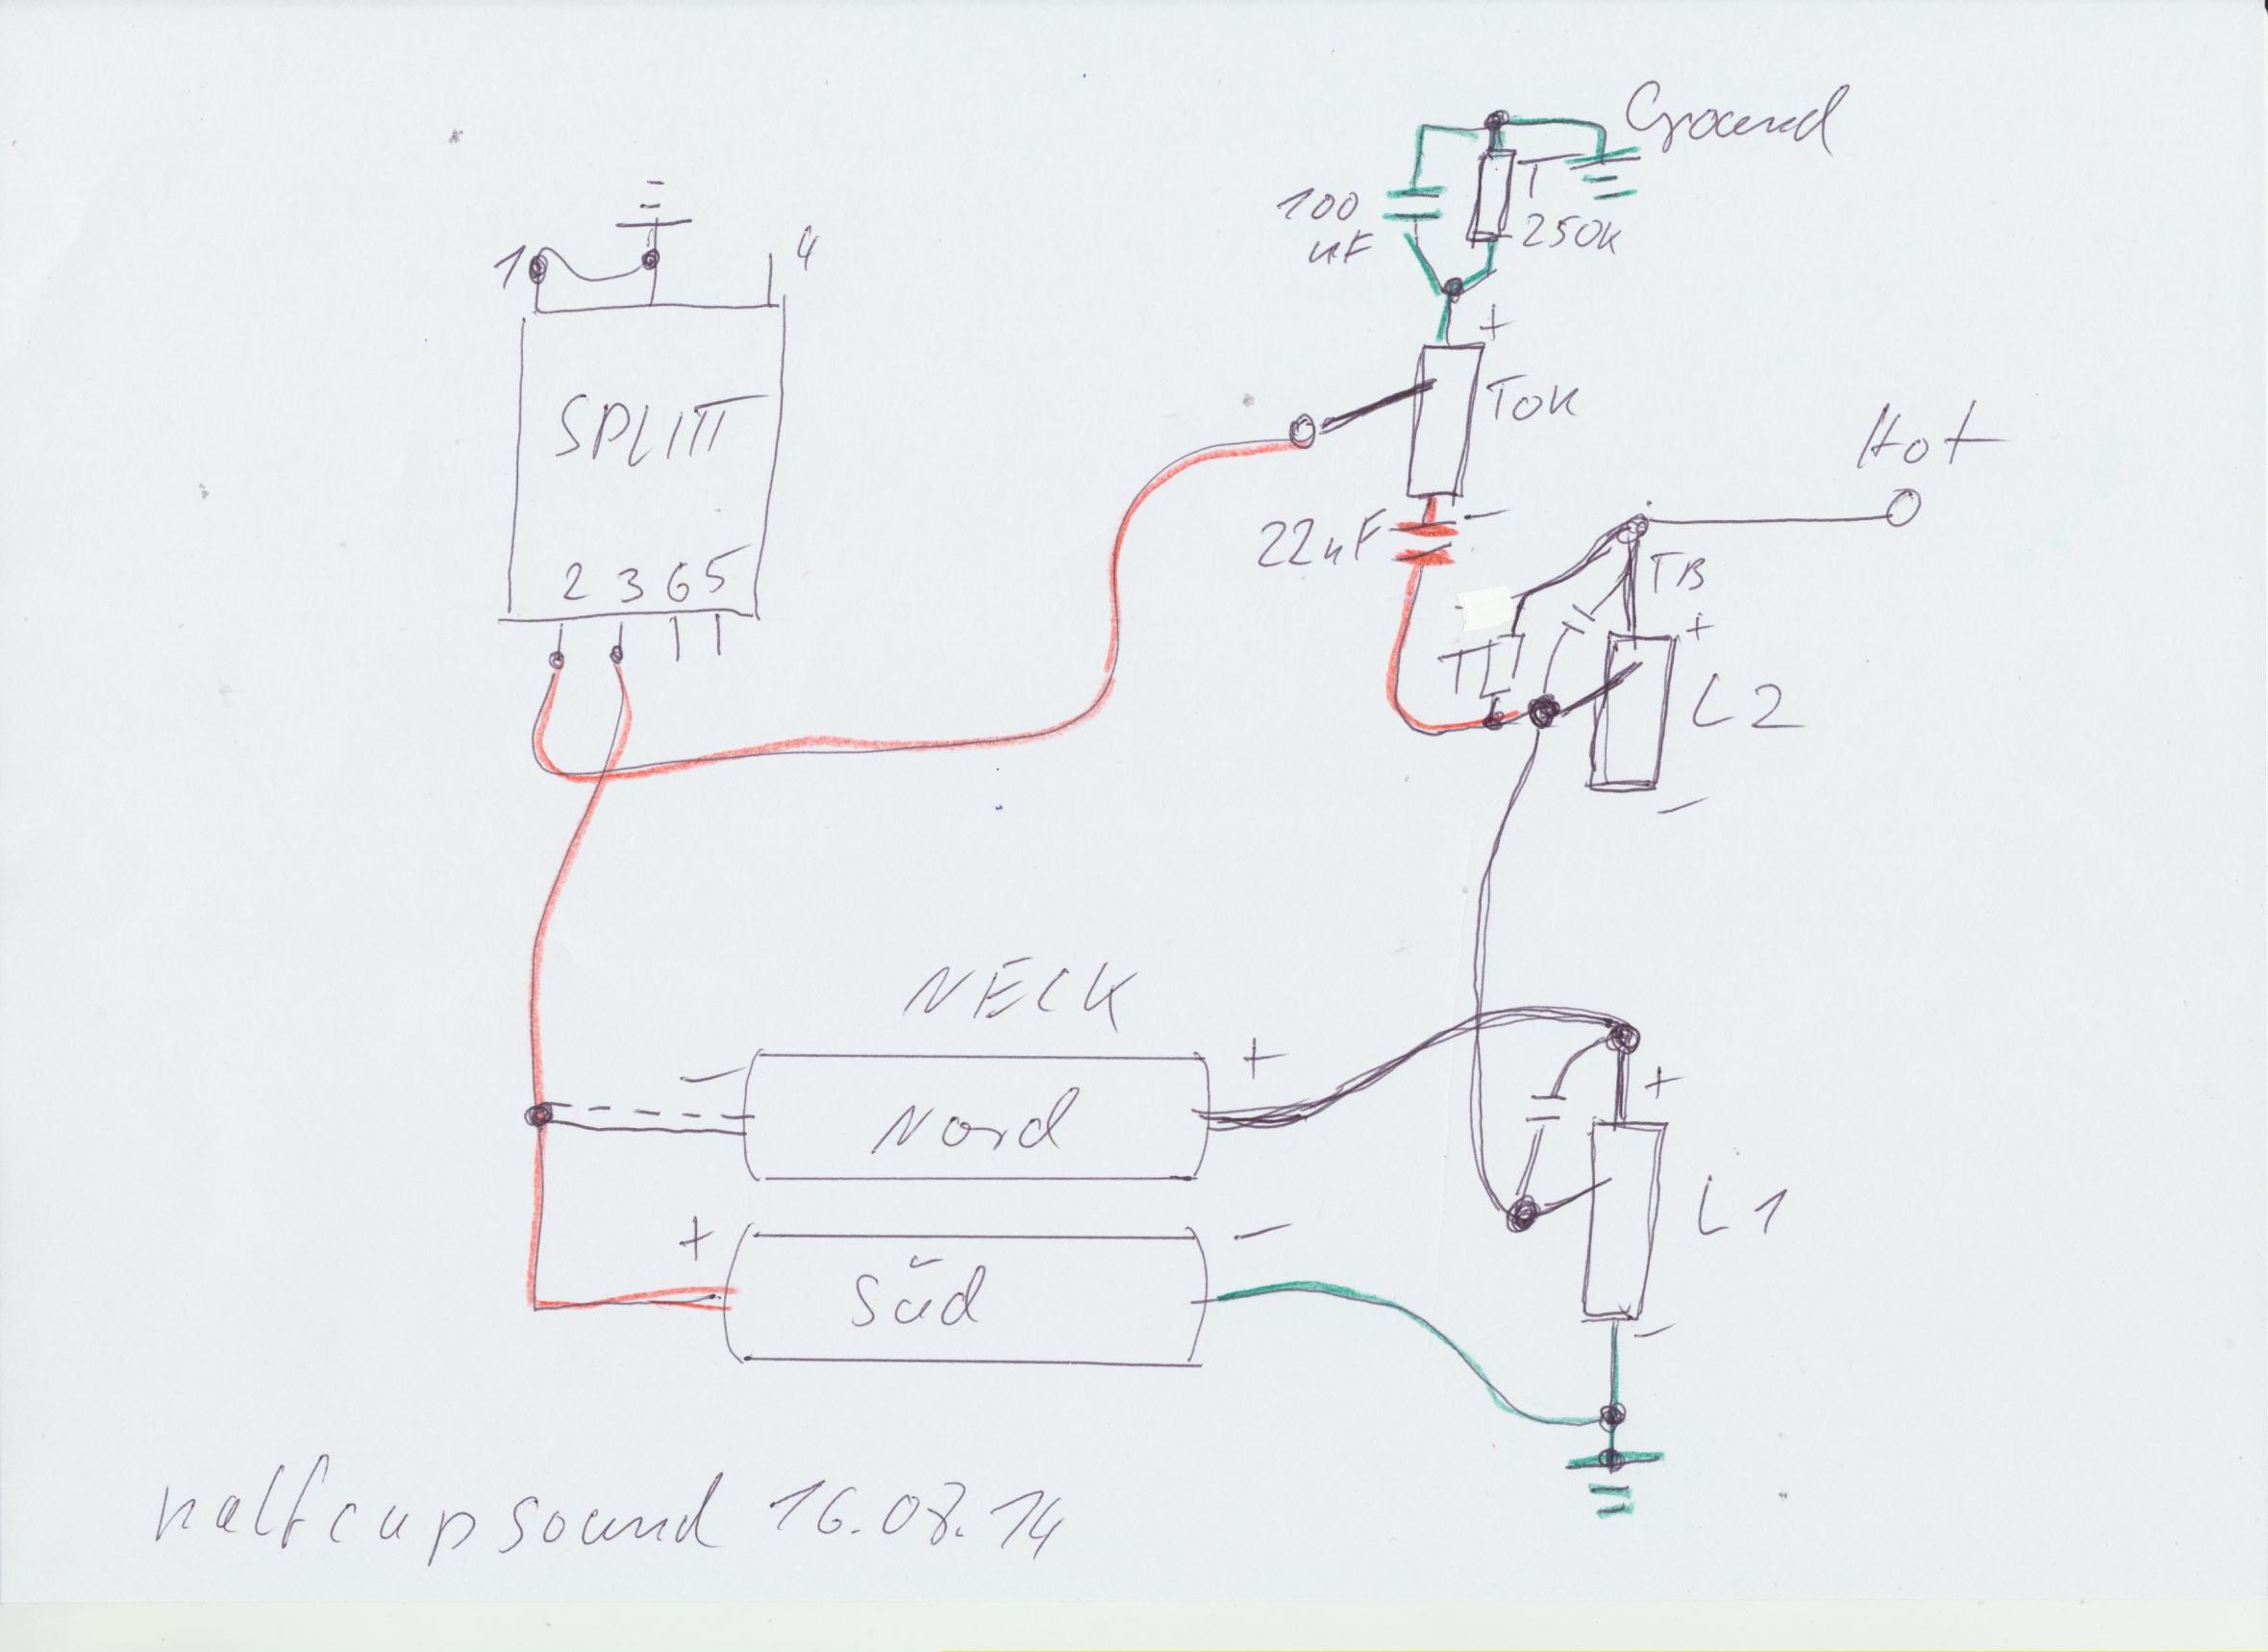 Ground
T
100
nF
250K
1
4
+
SPLITT
TOK
Hot
22nF
−
TB
2 3 6 5
+
L2
−
NECK
− +
Nord
+
+ −
Süd
L1
−
halfcupsound 16.08.14